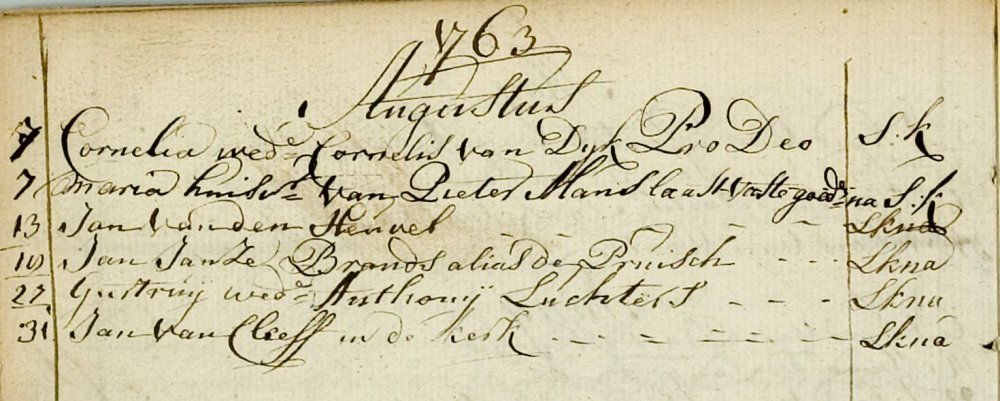 1763
Augustus
7 Cornelia wede. Cornelis van Dyk Pro Deo S.k
7 maria huisvr. van Pieter Mans laast vaste goed na S:k
13 Jan van den Heuvel - - - - - - Lkna
19 Jan Janze Brands alias de Pruisch - - - - Lkna
27 Geertruy wede. Anthonij Luchters - - - Lkna
31 Jan van Cleeff in de kerk - - - - - - Lkna